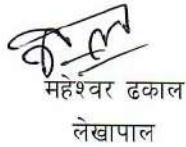 महेश्वर ढकाल
लेखापाल